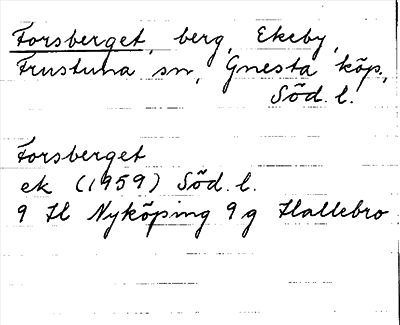 Forsberget, berg, Ekeby,
Frustuna sn, Gnesta köp.,
Söd. l.
Forsberget
ek (1959) Söd. l.
9 H Nyköping 9 g Hallebro